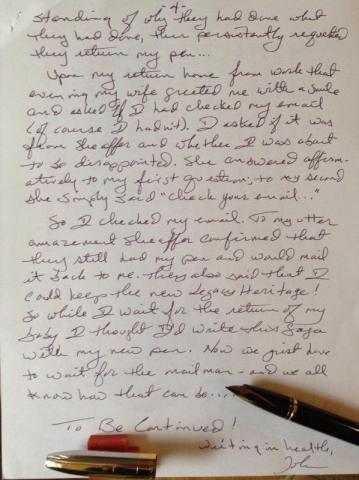 -4-
standing of why they had done what
they had done, then persistently requested
they return my pen...
Upon my return home from work that
evening my wife greeted me with a smile
and asked if I had checked my email
(of course I hadn't). I asked if it was
from Sheaffer and whether I was about
to be disappointed. She answered affirm-
atively to my first question; to my second
she simply said "check your email..."
So I checked my email. To my utter
amazement Sheaffer confirmed that
they still had my pen and would mail
it back to me. They also said that I
could keep the new Legacy Heritage!
So while I wait for the return of my
baby I thought I'd write this saga
with my new pen. Now we just have
to wait for the mailman - and we all
know how that can be....
To Be Continued!
Writing in health,
John